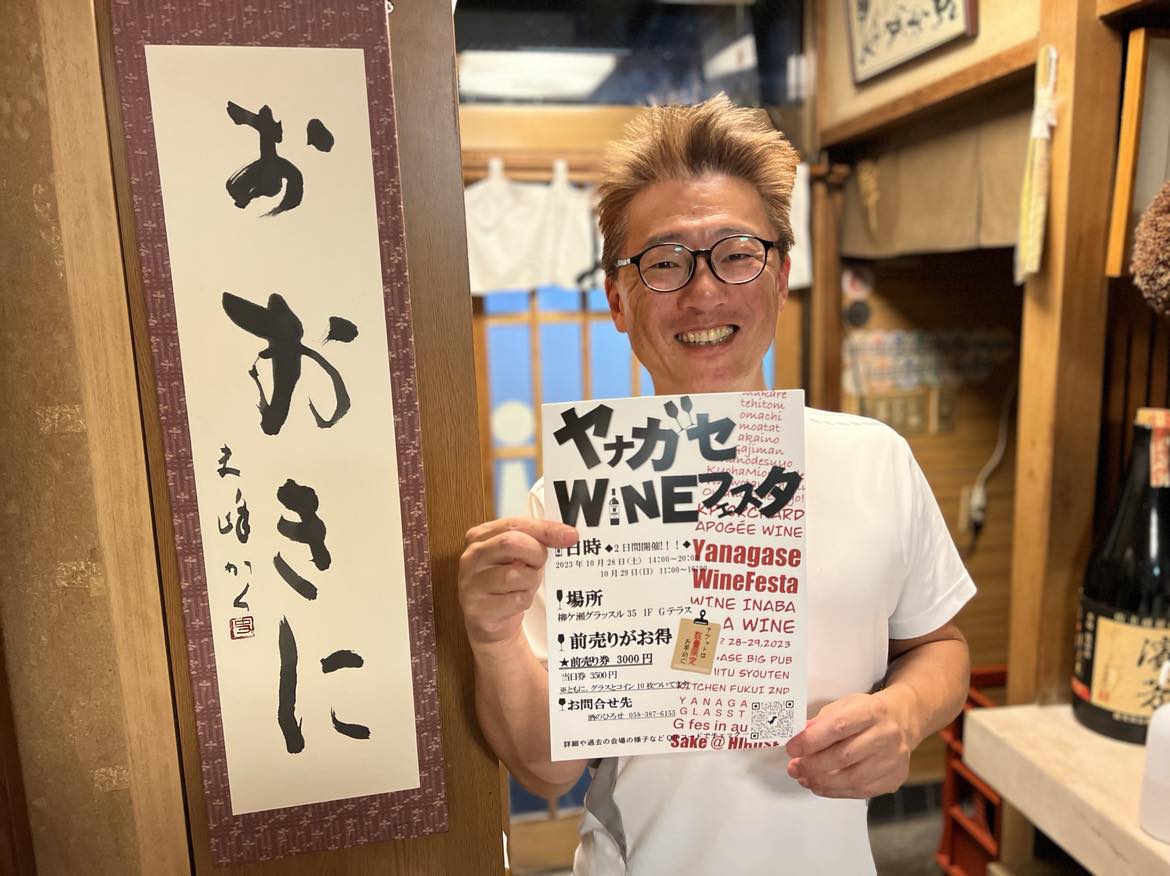 おおきに
ヤナガセ
WINEフェスタ
日時 ◆2日間開催!!!◆
2023年10月28日(土) 14:00~20:00
10月29日(日) 11:00~16:00
場所
柳ケ瀬グラッスル35 1F Gテラス
前売りがお得
★前売り券 3000円
当日券 3500円
※ともに、グラスとコイン10枚ついてます
お問合せ先
酒のひろせ 058-387-6155
詳細や過去の会場の様子など QRコードでチェック
チケットは
数量限定
お早めに
tehitom
omachi
moatat
akaino
gajiman
APOGÉE WINE
Yanagase
WineFesta
WINE INABA
A WINE
28-29,2023
ASE BIG PUB
ITU SYOUTEN
TCHEN FUKUI 2ND
YANAGA
GLASST
G fes in au
Sake @ Hirose